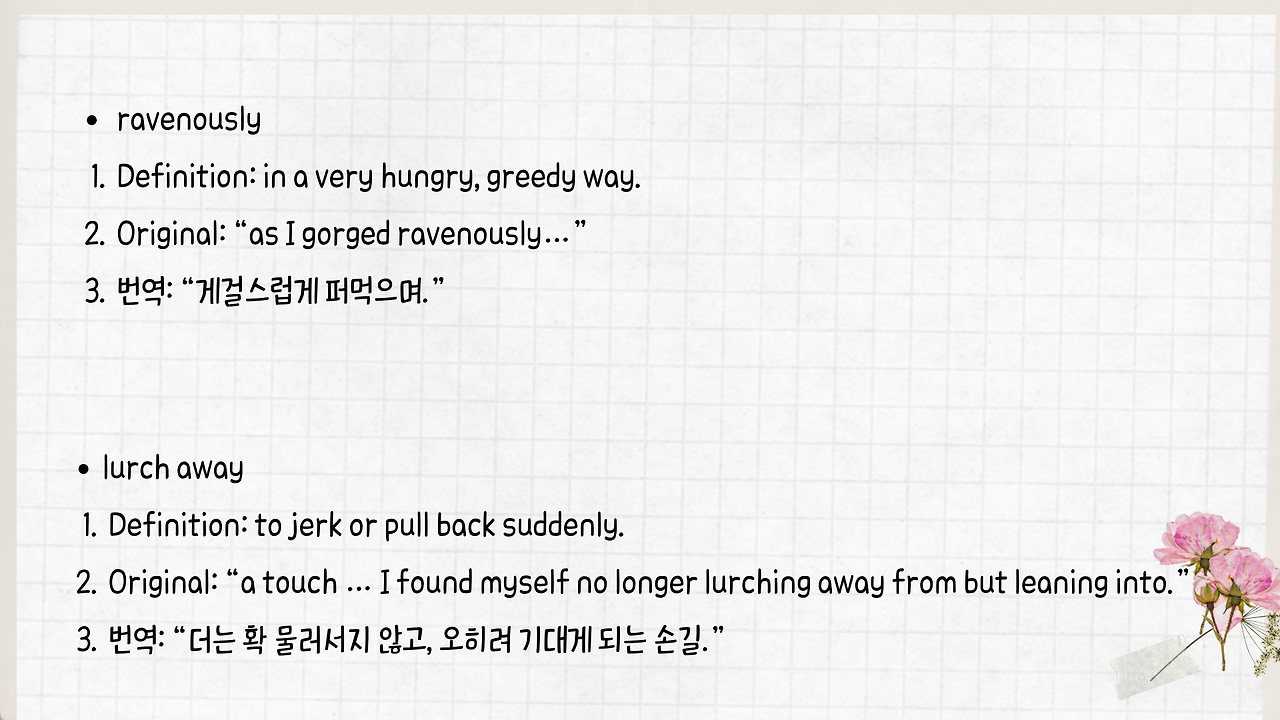 • ravenously
1. Definition: in a very hungry, greedy way.
2. Original: “as I gorged ravenously...”
3. 번역: “게걸스럽게 퍼먹으며.”
• lurch away
1. Definition: to jerk or pull back suddenly.
2. Original: “a touch ... I found myself no longer lurching away from but leaning into.”
3. 번역: “더는 확 물러서지 않고, 오히려 기대게 되는 손길.”